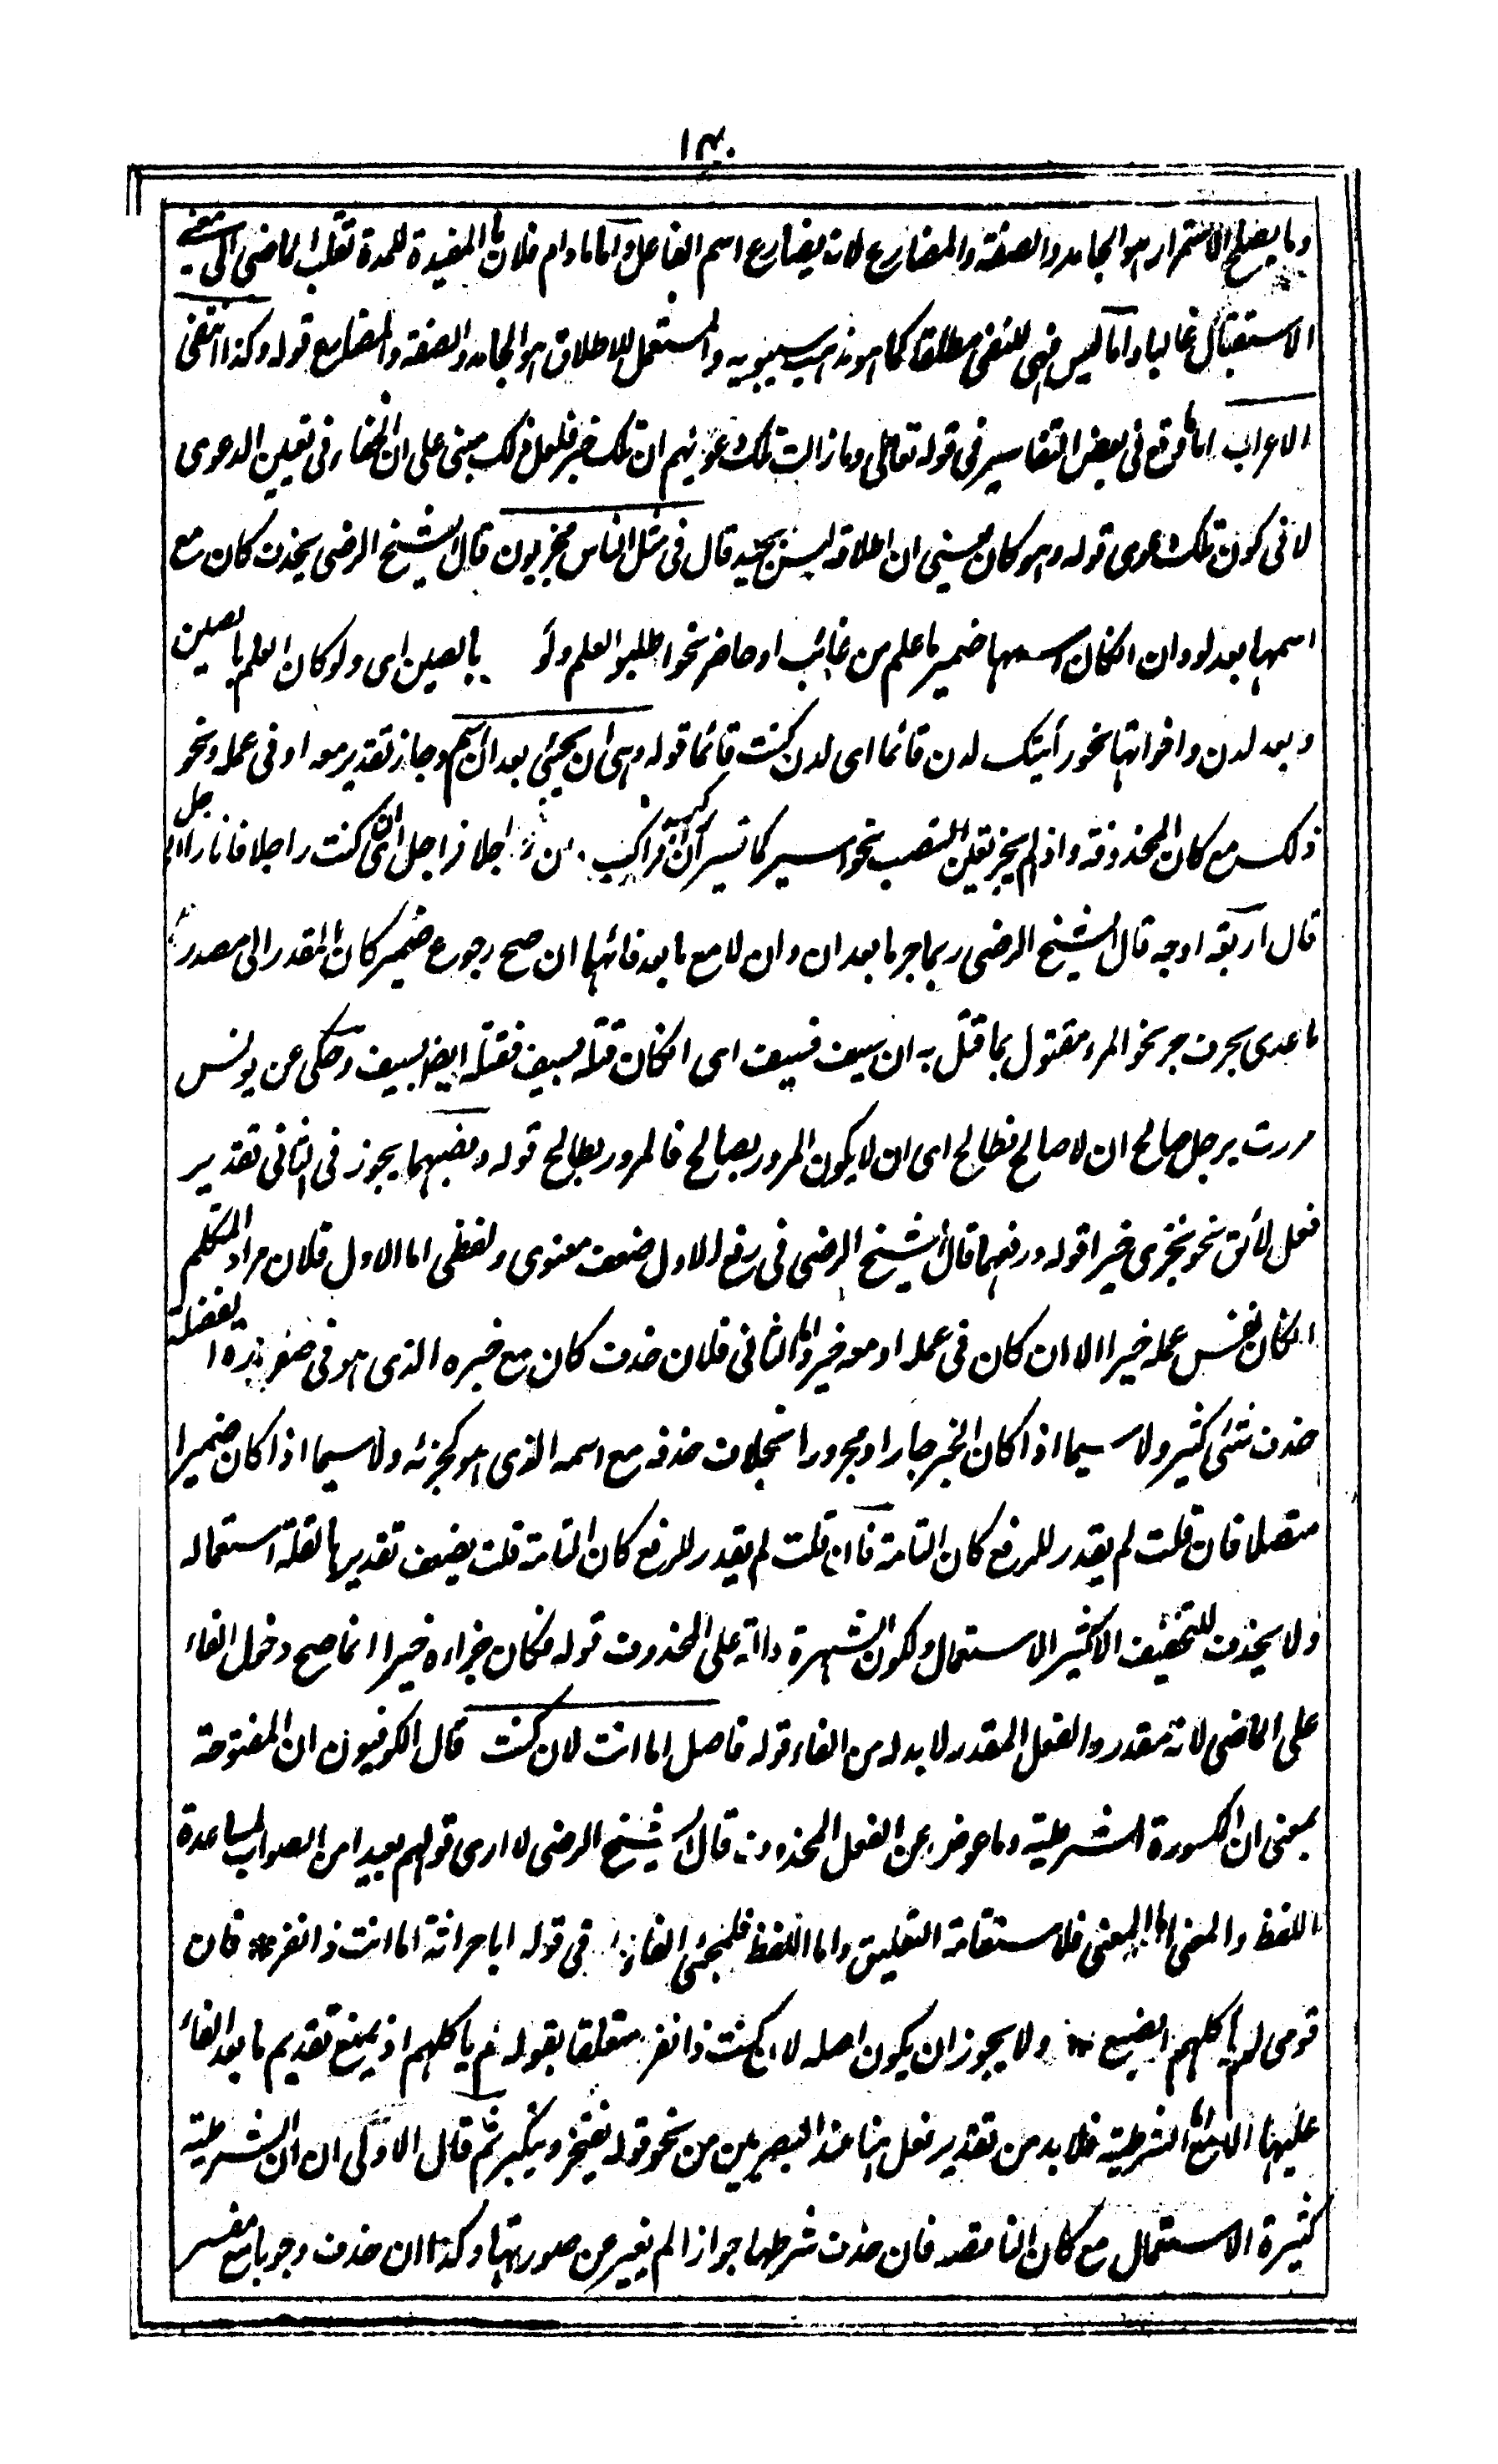 ١٣٠
وما يصلح للاستمرار هو الجامد والصفة والمضارع لانه يضارع اسم الفاعل واما مادام فلان ما المفيدة للمدة تقلب الماضى الى معنى
الاستقبال غالبا واما ليس فهى للنفى مطلقا كما هو مذهب سيبويه والمستعمل للاطلاق هو الجامد والصفة والمضارع قوله وكذا انتفى
الاعراب اما ما وقع فى بعض التفاسير فى قوله تعالى وما زالت تلك دعويهم ان تلك خبر فلعل ذلك مبنى على ان الخفاء فى تعيين الدعوى
لا فى كون تلك دعوى قوله وهو كان يعنى ان اطلاقه ليس بجيد قال فى مثل الناس مجزيون قال الشيخ الرضى يحذف كان مع
اسمها بعد لو وان انكان اسمها ضمير ما علم من غائب او حاضر نحو اطلبوا العلم ولو بالصين اى ولو كان العلم بالصين
وبعد لدن واخواتها نحو رأيتك لدن قائما اى لدن كنت قائما قوله وهى ان يجئى بعد ان اسم وجاز تقدير معه او فى عمله ونحو
ذلك مع كان المحذوفة واذا لم يجز تعين النصب نحو اسير كما تسير ان راكبا فراكب اجلا فراجل اى ان كنت راجلا فانا راجل
قال اربعة اوجه قال الشيخ الرضى ربما جر ما بعد ان وان لا مع ما بعد فائها ان صح رجوع ضمير كان المقدر الى مصدر
ما عدى بحرف جر نحو المرء مقتول بما قتل به ان سيف فسيف اى انكان قتله بسيف فقتله ايضا بسيف وحكى عن يونس
مررت برجل صالح ان لا صالح فطالح اى ان لا يكون المرور بصالح فالمرور بطالح قوله ونصبهما يجوز فى الثانى تقدير
فعل لائق نحو يجزى خيرا قوله ورفعهما قال الشيخ الرضى فى رفع الاول ضعف معنوى ولفظى اما الاول فلان مراد المتكلم
انكان نفس عمله خيرا لا ان كان فى عمله او معه خير واما الثانى فلان حذف كان مع خبره الذى هو فى صورة الفضلة
حذف شئى كثير ولا سيما اذا كان الخبر جارا ومجرورا بخلاف حذفه مع اسمه الذى هو كجزئه ولا سيما اذا كان ضميرا
متصلا فان قلت لم يقدر للرفع كان التامة فان قلت لم يقدر للرفع كان التامة قلت يضعف تقديرها لقلة استعماله
ولا يحذف للتخفيف الا كثير الاستعمال ولكون الشهرة دالة على المحذوف قوله فكان جزاءه خيرا انما صح دخول الفاء
على الماضى لانه مقدر والفعل المقدر لا بد له من الفاء قوله فاصل اما انت لان كنت قال الكوفيون ان المفتوحة
بمعنى ان المكسورة الشرطية وما عوض عن الفعل المحذوف قال الشيخ الرضى لا ارى قولهم بعيدا من الصواب لمساعدة
اللفظ والمعنى اما المعنى فلاستقامة التعليق واما اللفظ فلمجئى الفاء فى قوله ابا خراشة اما انت ذا نفر * فان
قومى لم يأكلهم الضبع * ولا يجوز ان يكون اصله لان كنت ذا نفر متعلقا بقوله لم يأكلهم اذ يمتنع تقديم ما بعد الفاء
عليها الا مع اما الشرطية فلا بد من تقدير فعل هنا عند البصريين من نحو قوله يفتخر ويتكبر ثم قال الاولى ان ان الشرطية
كثيرة الاستعمال مع كان الناقصة فان حذف شرطها جوازا لم يغير عن صورتها وكذا ان حذف وجوبا مع مفسر